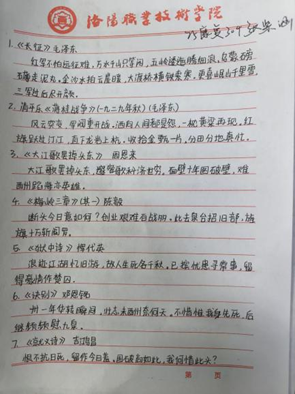 洛阳职业技术学院
1.《长征》毛泽东
红军不怕远征难，万水千山只等闲，五岭逶迤腾细浪，乌蒙磅
礴走泥丸，金沙水拍云崖暖，大渡桥横铁索寒，更喜岷山千里雪，
三军过后尽开颜。
2.清平乐《蒋桂战争》（一九二九年秋）（毛泽东）
风云突变，军阀重开战，洒向人间都是怨，一枕黄粱再现，红
旗跃过汀江，直下龙岩上杭，收拾金瓯一片，分田分地真忙。
3.《大江歌罢掉头东》 周恩来
大江歌罢掉头东，邃密群科济世穷，面壁十年图破壁，难
酬蹈海亦英雄。
4.《梅岭三章》（其一）陈毅
断头今日意如何？创业艰难百战多，此去泉台招旧部，旌
旗十万斩阎罗。
5.《狱中诗》恽代英
浪迹江湖忆旧游，故人生死各千秋，已摈忧患寻常事，留
得豪情作楚囚。
6.《诀别》邓恩铭
卅一年华转瞬间，壮志未酬奈何天，不惜惟我身先死，后
继频频慰九泉。
7.《就义诗》吉鸿昌
恨不抗日死，留作今日羞，国破尚如此，我何惜此头？
第 页